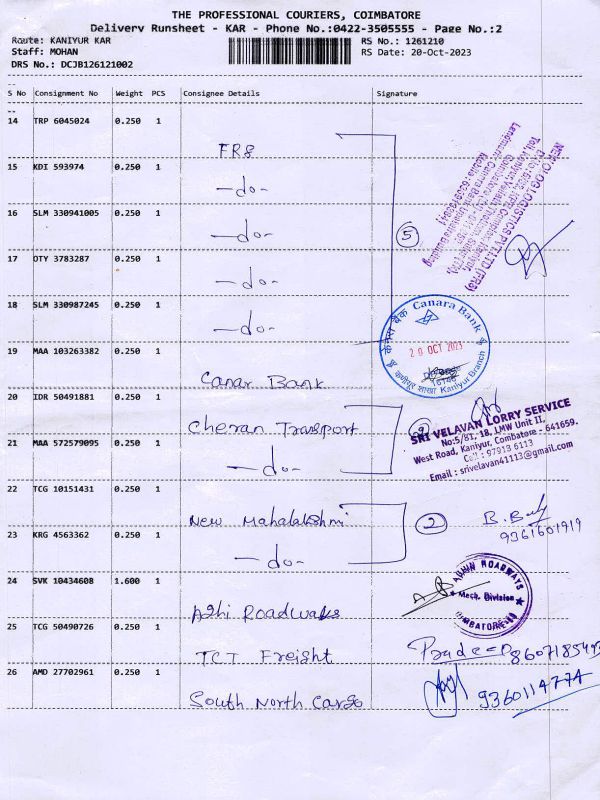 THE PROFESSIONAL COURIERS, COIMBATORE
Delivery Runsheet - KAR - Phone No.:0422-3505555 - Page No.:2
Route: KANIYUR KAR
RS No.: 1261210
Staff: MOHAN
RS Date: 20-Oct-2023
DRS No.: DCJB126121002
S No Consignment No Weight PCS Consignee Details Signature
14 TRP 6045024 0.250 1
FR8
15 KDI 593974 0.250 1
-do-
16 SLM 330941005 0.250 1
-do-
5
17 OTY 3783287 0.250 1
-do-
18 SLM 330987245 0.250 1
-do-
Canara Bank
केनरा बैंक
20 OCT 2023
Kaniyur Branch
19 MAA 103263382 0.250 1
Canar Bank
20 IDR 50491881 0.250 1
Cheran Transport
SRI VELAVAN LORRY SERVICE
No:5/81, 18, LMW Unit II,
West Road, Kaniyur, Combatore - 641659.
Cell : 97913 6113
Email : srivelavan41113@gmail.com
21 MAA 572579095 0.250 1
-do-
22 TCG 10151431 0.250 1
New Mahalakshmi
2
9361601919
23 KRG 4563362 0.250 1
-do-
24 SVK 10434608 1.600 1
ROADWAYS
Mech. Division
25 TCG 50490726 0.250 1
TCT Freight
26 AMD 27702961 0.250 1
South North Cargo
9360114774